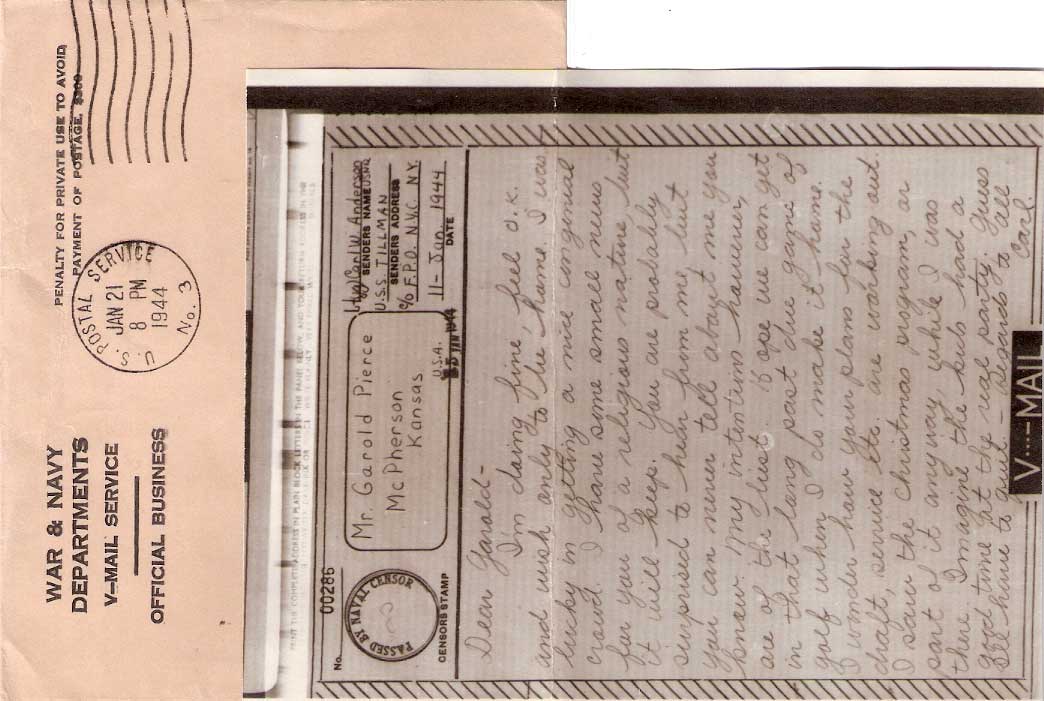 WAR & NAVY
DEPARTMENTS
V—MAIL SERVICE
OFFICIAL BUSINESS
U.S. POSTAL SERVICE
JAN 21
8 PM
1944
No. 3
PENALTY FOR PRIVATE USE TO AVOID
PAYMENT OF POSTAGE, $300
No.
00286
PASSED BY NAVAL CENSOR
CENSORS STAMP
Mr. Garold Pierce
McPherson
Kansas
U.S.A.
Carl W. Anderson
SENDERS NAME USNR
U.S.S. TILLMAN
SENDERS ADDRESS
c/o F.P.O. N.Y.C. N.Y.
11 - Jan. 1944
DATE
Dear Garold-
Im doing fine, feel O.K.
and wish only to be home. I was
lucky in getting a nice congenial
crowd. I have some small news
for you of a religious nature but
it will keep. You are probably
surprised to hear from me, but
you can never tell about me you
know. My intentions however,
are of the best. I ope we can get
in that long past due game of
golf when I do make it home.
I wonder how your plans for the
draft, service etc. are working out.
I saw the christmas program, or
part of it anyway while I was
there. Imagine the kids had a
good time at the real party. Guess
Ill have to quit - regards to all
Carl.
V...—MAIL